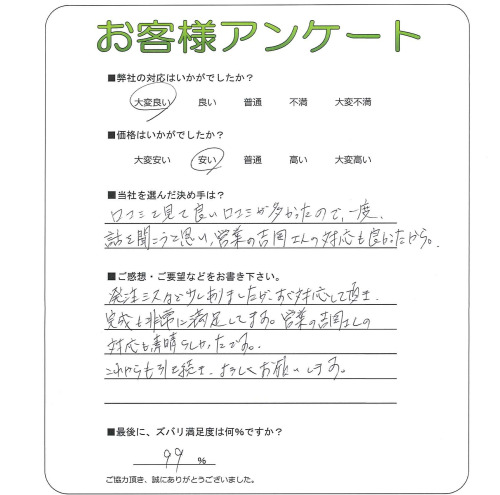 お客様アンケート
■弊社の対応はいかがでしたか？
大変良い 良い 普通 不満 大変不満
■価格はいかがでしたか？
大変安い 安い 普通 高い 大変高い
■当社を選んだ決め手は？
口コミで見て良い口コミが多かったので、一度、
話を聞こうと思い、営業の吉岡さんの対応も良かったから。
■ご感想・ご要望などをお書き下さい。
発注ミスなど少しありましたが、すぐ対応して頂き、
完成も非常に満足してます。営業の吉岡さんの
対応も素晴らしかったです。
これからも引き続き、よろしくお願いします。
■最後に、ズバリ満足度は何％ですか？
99 %
ご協力頂き、誠にありがとうございました。